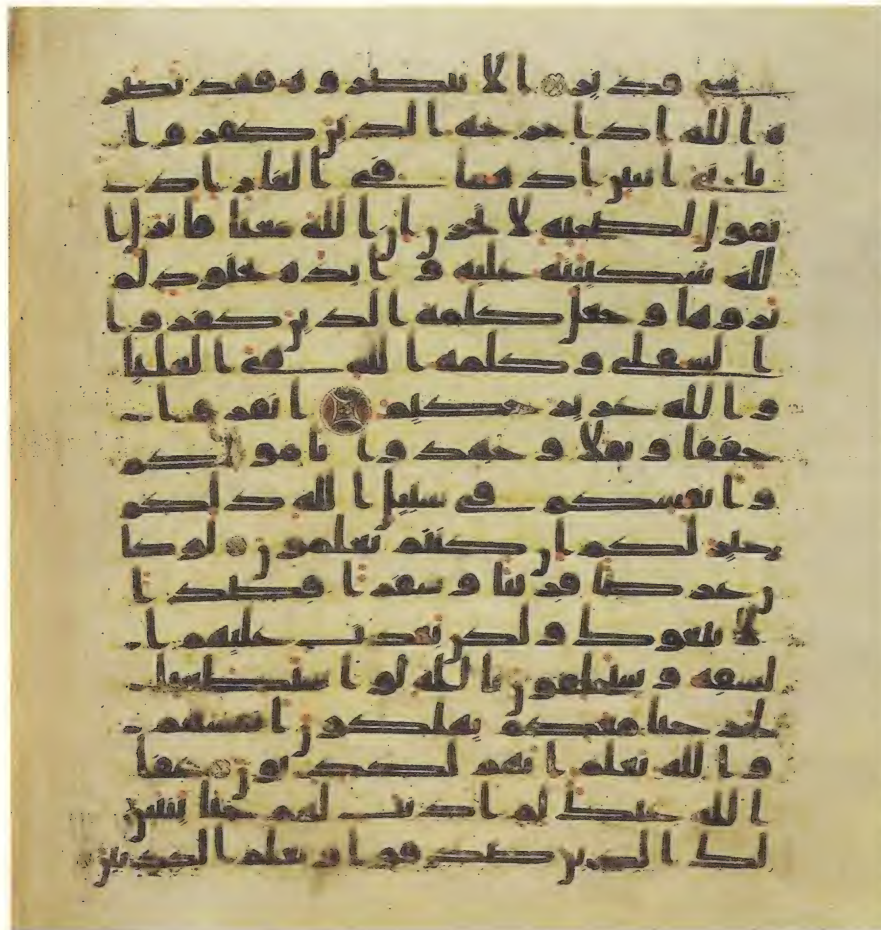 شي قدير الا تنصروه فقد نصر
ه الله اذ اخرجه الذين كفروا
ثاني اثنين اذ هما في الغار اذ
يقول لصحبه لا تحزن ان الله معنا فانزل ا
لله سكينته عليه وايده بجنود لم
تروها وجعل كلمة الذين كفروا
السفلى وكلمة الله هي العليا
والله عزيز حكيم انفروا
خفافا وثقالا وجهدوا باموالكم
وانفسكم في سبيل الله ذلكم
خير لكم ان كنتم تعلمون لو كا
ن عرضا قريبا وسفرا قصدا
لاتبعوك ولكن بعدت عليهم ا
لشقة وسيحلفون بالله لو استطعنا
لخرجنا معكم يهلكون انفسهم
والله يعلم انهم لكذبون عفا
الله عنك لم اذنت لهم حتى يتبين
لك الذين صدقوا وتعلم الكذبين